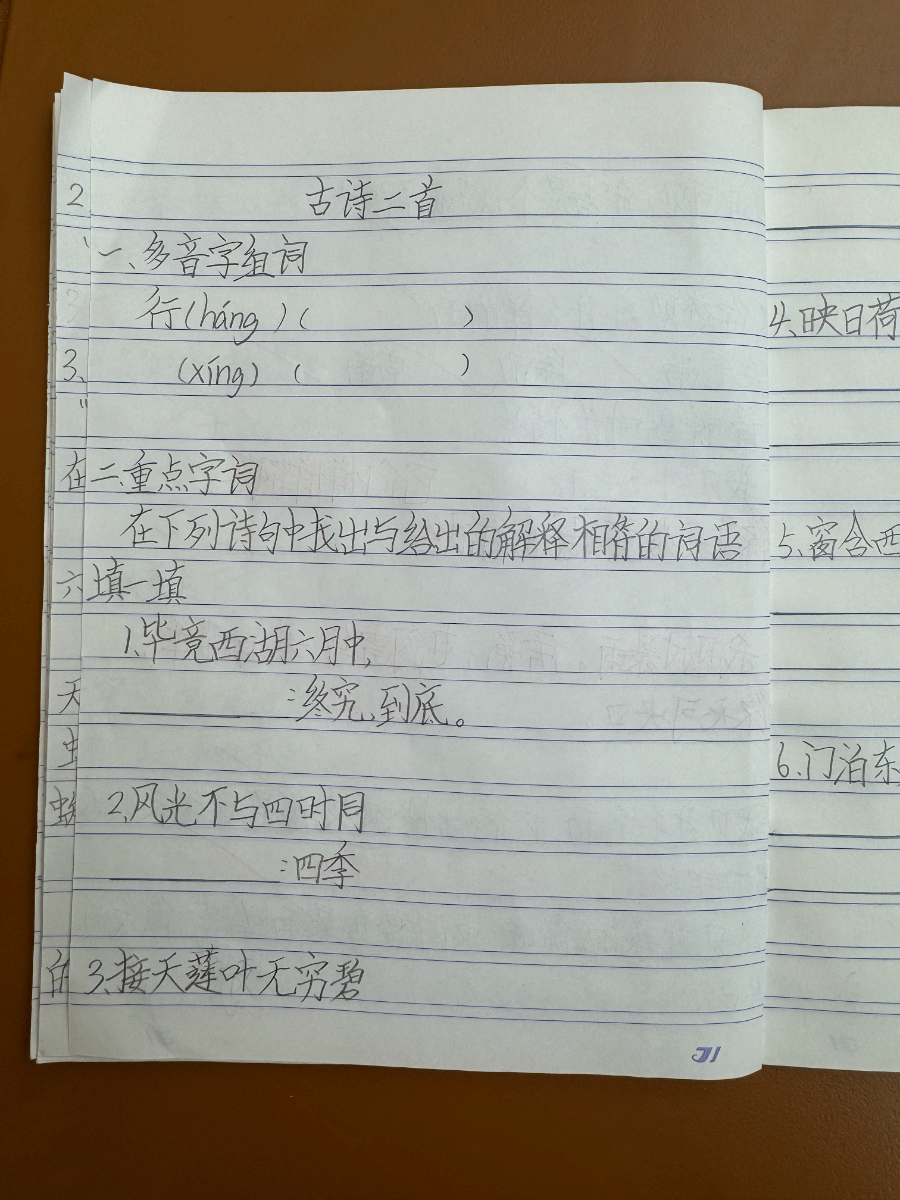 古诗二首
一、多音字组词
行(háng)(　　　)
(xíng)(　　　)
二、重点字词
在下列诗句中找出与给出的解释相符的词语
填一填
1、毕竟西湖六月中,
________:终究、到底。
2、风光不与四时同
________:四季
3、接天莲叶无穷碧
2
3、
在
六
天
的
4、映日荷
5、窗含西
6、门泊东